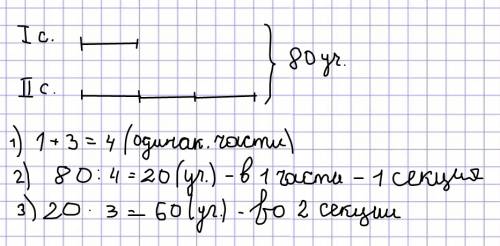 I с.
80 уч.
II с.
1) 1 + 3 = 4 (одинак. части)
2) 80 : 4 = 20 (уч.) - в 1 части - 1 секция
3) 20 · 3 = 60 (уч.) - во 2 секции